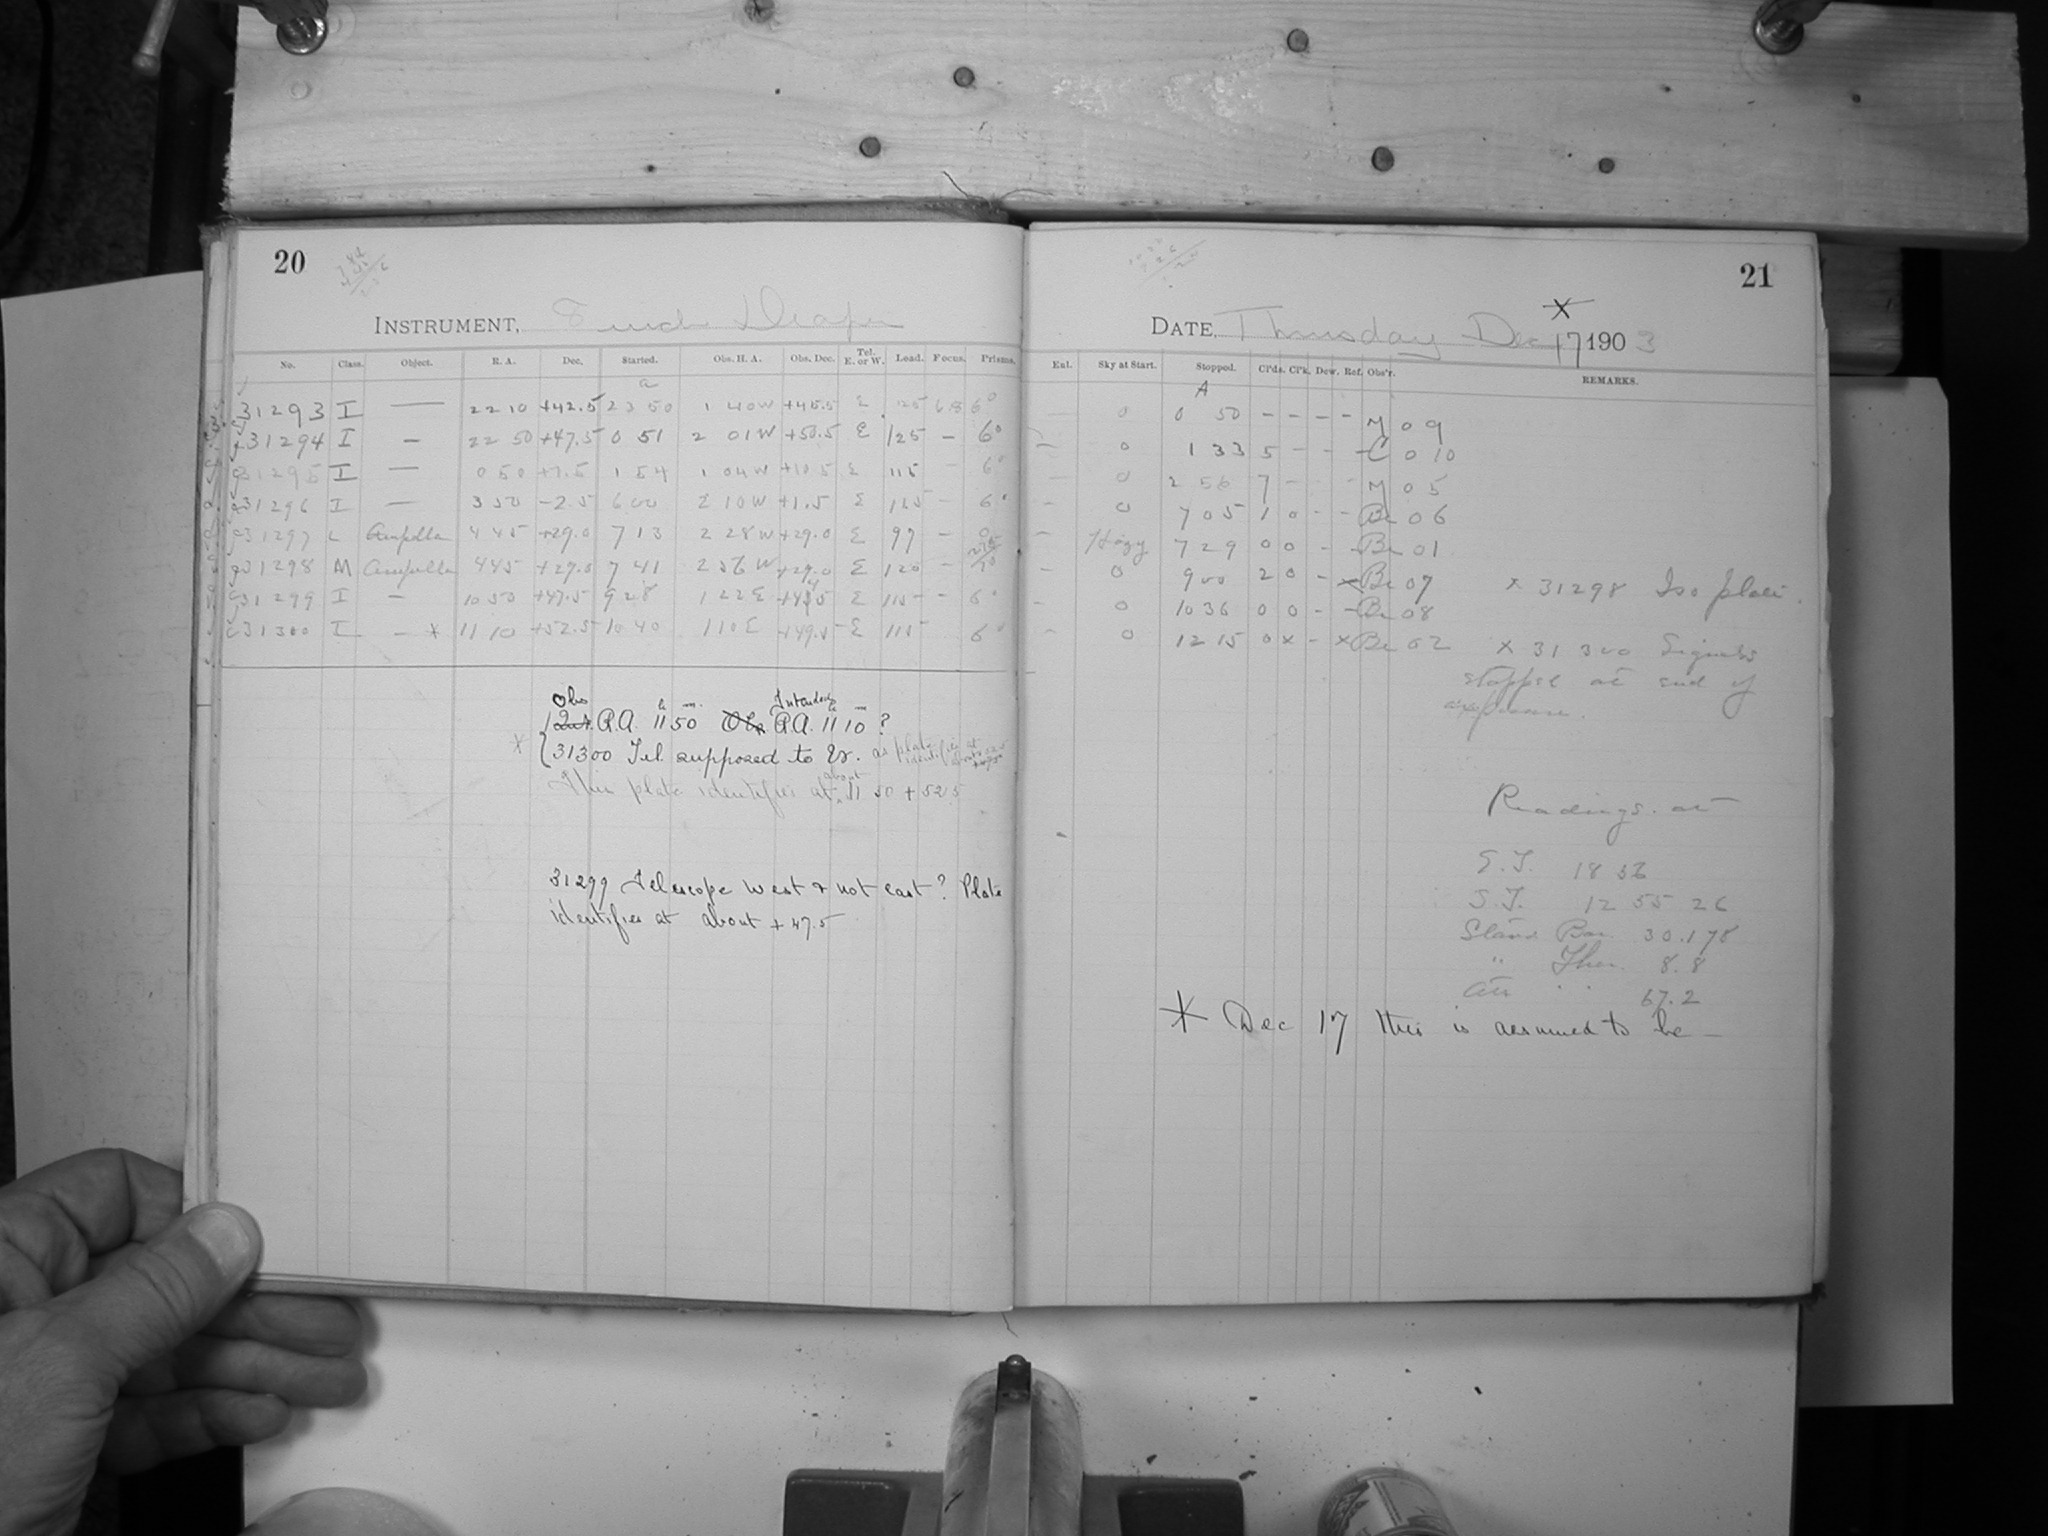 20
INSTRUMENT, 8 inch Draper
No. Class. Object. R. A. Dec. Started. Obs. H. A. Obs. Dec. Tel. E. or W. Load. Focus. Prisms.
31293 I — 22 10 +42.5 23 50 1 40 W +45.5 E 125 6.8 6°
31294 I — 22 50 +47.5 0 51 2 01 W +50.5 E 125 – 6°
31295 I — 0 50 +7.5 1 54 1 04 W +10.5 E 115 – 6°
31296 I — 3 50 -2.5 6 00 2 10 W +1.5 E 115 – 6°
31297 L 4 45 +29.0 7 13 2 28 W +29.0 E 97 – 0
31298 M 4 45 +29.0 7 41 2 56 W +29.0 E 120 –
31299 I – 10 50 +47.5 9 28 1 22 E E 115 – 6°
31300 I – * 11 10 +52.5 10 40 1 10 E +49.5 E 115 6°
Obs R.A. 11h 50m Intended R.A. 11h 10m ?
* 31300 Tel supposed to Er. as plate identifies at
This plate identifies at about 11 50 + 52.5
31299 Telescope west & not east? Plate
identifies at about + 47.5
21
DATE, Thursday Dec 17 1903 *
Eul. Sky at Start. Stopped. Cl'ds. Cl'k. Dew. Ref. Obs'r. REMARKS.
A
0 0 50 – – – – M 09
– 0 1 33 5 – – – C 010
– 0 2 56 7 – – M 05
– 0 7 05 1 0 – – Be 06
– Hazy 7 29 0 0 – – Be 01
– 0 9 00 2 0 – x Be 07 x 31298 Iso plate.
– 0 10 36 0 0 – – Be 08
– 0 12 15 0 x – x Be 02 x 31300 Signals
stopped at end of
exposure.
Readings at
E.T. 18 56
S.T. 12 55 26
Stand Bar. 30.178
" Ther. 8.8
Att " 67.2
* Dec 17 this is assumed to be —